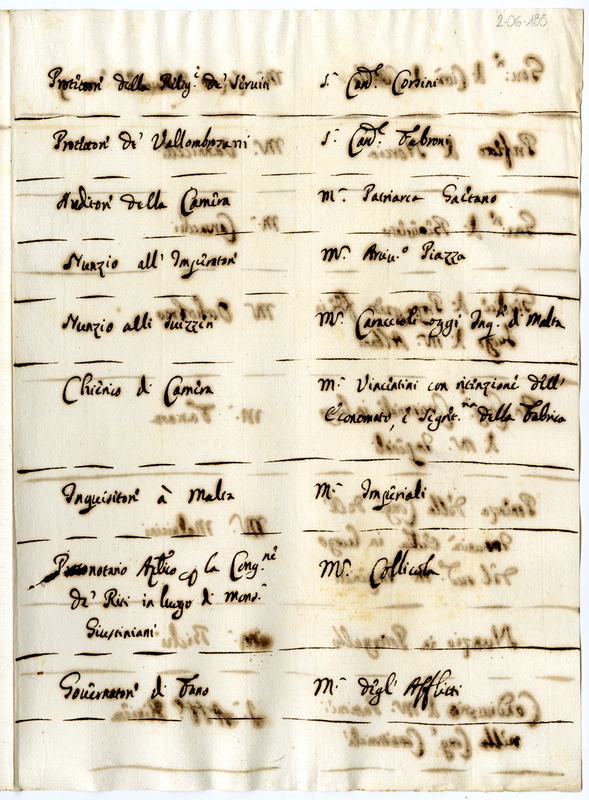 2-06-185
Protettore della Relig.e de' Serviti S.r Card.le Corsini
Protettore de' Vallombrosani S.r Card.le Fabroni
Auditore della Camera M.r Patriarca Gaetano
Nunzio all' Imperatore M.r Arciv.o Piazza
Nunzio alli Suizzeri M.r Caraccioli oggi Inq.re di Malta
Chierico di Camera M.r Vincentini con ritenzione dell'
Economato, e Segret.ria della Fabrica
Inquisitore à Malta M.r Imperiali
Protonotario Ap.lico la Cong.ne M.r Collicola
de' Riti in luogo di Mons.r
Giustiniani
Governatore di Fano M.r degl' Afflitti